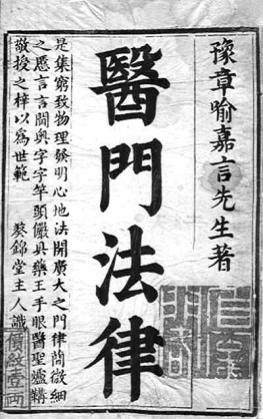 豫章喻嘉言先生著
醫門法律
是集窮致物理發明心地法開廣大之門律簡微細
之愿言言開奧字字竿頭儼具藥王手眼醫聖爐鞲
敬授之梓以為世範
葵錦堂主人識
價紋壹兩